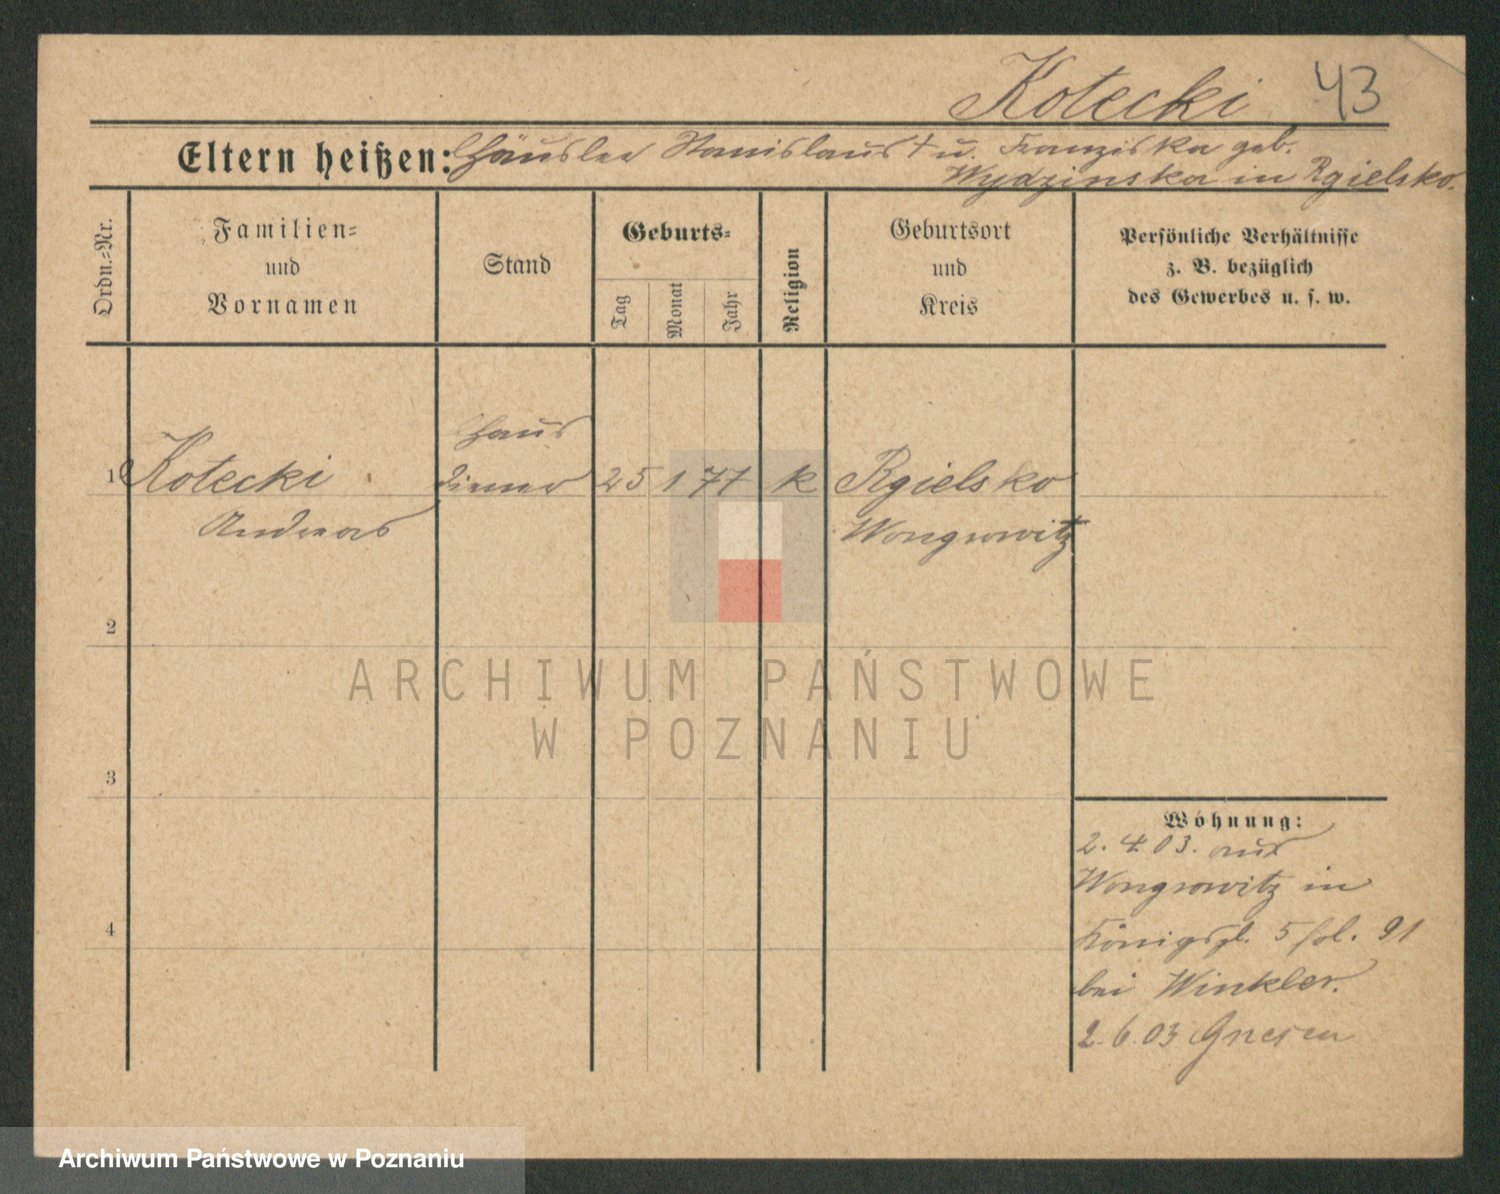 Kotecki 43
Eltern heißen: Häusler Stanislaus † u. Franziska geb.
Wydzinska in Rgielsko.
Ordn.-Nr.
Familien-
und
Vornamen
Stand
Geburts-
Tag
Monat
Jahr
Religion
Geburtsort
und
Kreis
Persönliche Verhältnisse
z. B. bezüglich
des Gewerbes u. s. w.
Haus
1 Kotecki diener 25 1 77 k Rgielsko
Andreas Wongrowitz
2
ARCHIWUM PAŃSTWOWE
W POZNANIU
3
Wohnung:
2. 4. 03. aus
Wongrowitz in
4
Königspl. 5 fol. 91
bei Winkler.
2. 6. 03 Gnesen
Archiwum Państwowe w Poznaniu